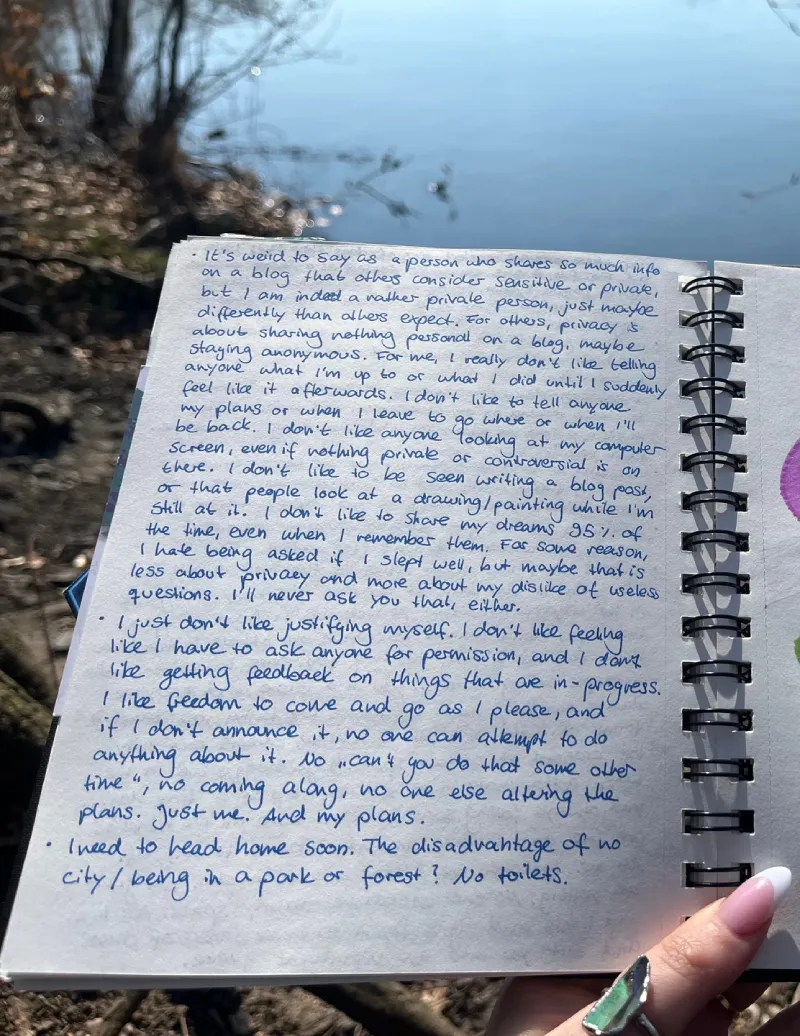 · It's weird to say as a person who shares so much info
on a blog that others consider sensitive or private,
but I am indeed a rather private person, just maybe
differently than others expect. For others, privacy is
about sharing nothing personal on a blog, maybe
staying anonymous. For me, I really don't like telling
anyone what I'm up to or what I did until I suddenly
feel like it afterwards. I don't like to tell anyone
my plans or when I leave to go where or when I'll
be back. I don't like anyone looking at my computer
screen, even if nothing private or controversial is on
there. I don't like to be seen writing a blog post,
or that people look at a drawing/painting while I'm
still at it. I don't like to share my dreams 95% of
the time, even when I remember them. For some reason,
I hate being asked if I slept well, but maybe that is
less about privacy and more about my dislike of useless
questions. I'll never ask you that, either.
· I just don't like justifying myself. I don't like feeling
like I have to ask anyone for permission, and I don't
like getting feedback on things that are in-progress.
I like freedom to come and go as I please, and
if I don't announce it, no one can attempt to do
anything about it. No „can't you do that some other
time“, no coming along, no one else altering the
plans. Just me. And my plans.
· I need to head home soon. The disadvantage of no
city/being in a park or forest? No toilets.